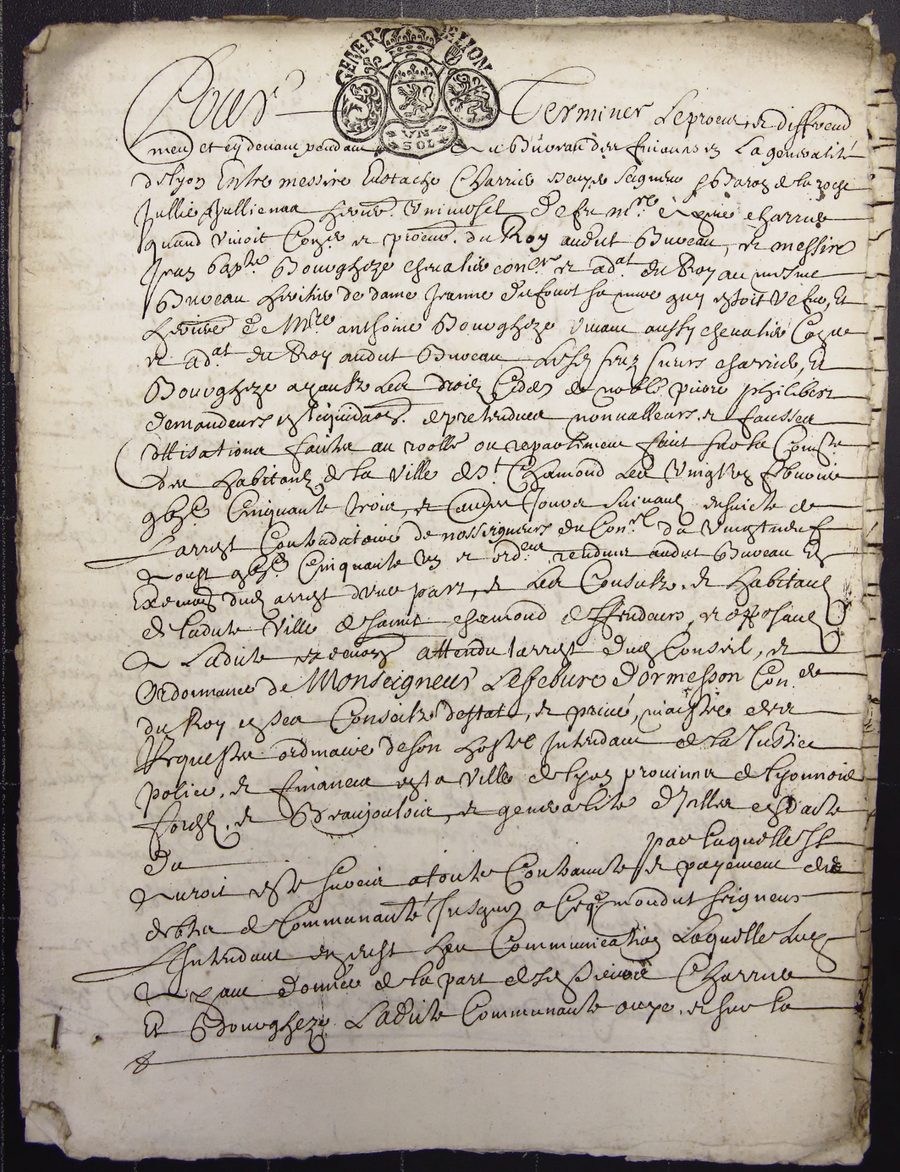 GENER LION
VN SOL
Pour Terminer Le proces et differend
meu et cy devant pendant au Bureau des finances en La generalité
de Lyon Entre messire Eustache Charrie Seigneur Baron de la roche
Jullie Jullienas
quand vivoit Con.er et procur. du Roy audit Bureau, et messire
Jean bap.te Bourgheze chevalie con.er et ad.at du Roy au mesme
Bureau heritie de dame Jeanne Dufour sa mere quy estoit vefve, Et
heritiere de M.re anthoine Bourgheze vivant aussy chevalie
et ad.at du Roy audit Bureau Lesd. sieurs charrie, Et
Bourgheze ayantz Les droictz Cedes de noble pierre philibert
demandeurs de pretendues nonvalleurs et fausses
Cottisations faictes au roolle ou repartiment faict sur la
des Habitantz de la Ville de S.t Chamond Les Vingt febvrier
Cinquante trois, et autres Jours Suivantz ensuicte de
L'arrest de nosseigneurs du Con.el du Vingt neuf
Aoust Cinquante et ord. rendues audit Bureau En
Execution dud. arrest d'une part, et Les Consulz et Habitantz
de Ladicte Ville de Saint chamond deffendeurs, et opposantz
A Ladicte execution attendu l'arrest dud. Conseil, et
Ordonnance de Monseigneur Lefebure Dormesson Con.er
du Roy en ses Conseilz d'estat, et privé, maistre des
Requestes ordinaire de son hostel Intendant de la Justice
police, et finances en la Ville de Lyon provinces de Lyonnois
forestz, et Beaujoulois, et generalité D'Icelles en datte
du par laquelle Il
Auroit esté surcis a toute Contrainte et payement des
debtes de Communauté Jusques a Ce que mondit seigneur
L'Intendant en eust heu Communication Laquelle Luy
Ayant donnée de la part desd. sieurs Charrie
Et Bourgheze Ladicte Communauté ouye, et sur la